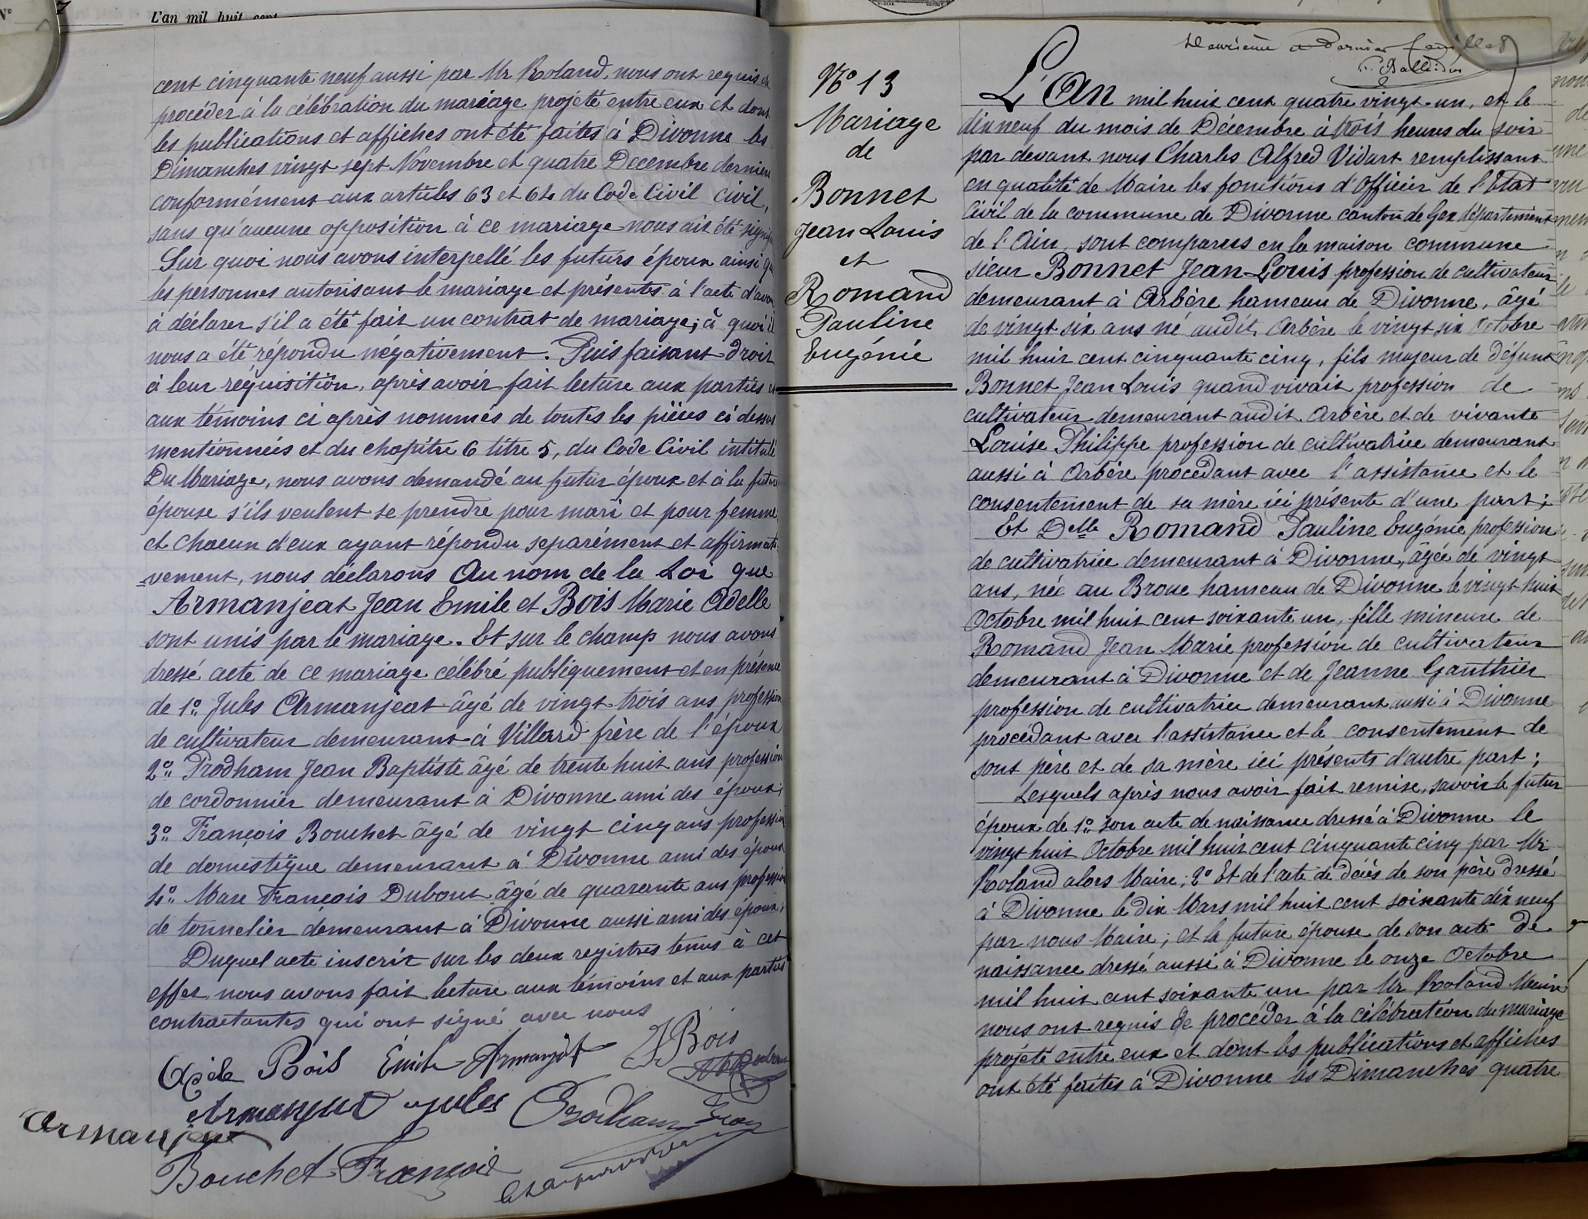 L'an mil huit cent
cent cinquante neuf aussi par Mr Roland, nous ont requis de
procéder à la célébration du mariage projeté entre eux et dont
les publications et affiches ont été faites à Divonne les
Dimanches vingt sept Novembre et quatre Décembre dernier
conformément aux articles 63 et 64 du Code Civil civil,
sans qu'aucune opposition à ce mariage nous ait été signifiée
Sur quoi nous avons interpellé les futurs époux ainsi que
les personnes autorisant le mariage et présentes à l'acte d'avoir
à déclarer s'il a été fait un contrat de mariage; à quoi il
nous a été répondu négativement. Puis faisant droit
à leur réquisition, après avoir fait lecture aux parties et
aux témoins ci après nommés de toutes les pièces ci dessus
mentionnées et du chapitre 6 titre 5, du Code Civil intitulé
Du Mariage, nous avons demandé au futur époux et à la future
épouse s'ils veulent se prendre pour mari et pour femme
et chacun d'eux ayant répondu séparément et affirmati
-vement, nous déclarons Au nom de la Loi que
Armanjeat Jean Emile et Bois Marie Adelle
sont unis par le mariage. Et sur le champ nous avons
dressé acte de ce mariage célébré publiquement et en présence
de 1º Jules Armanjeat âgé de vingt trois ans profession
de cultivateur demeurant à Villard frère de l'époux
2º Prodham Jean Baptiste âgé de trente huit ans profession
de cordonnier demeurant à Divonne ami des époux,
3º François Bouchet âgé de vingt cinq ans profession
de domestique demeurant à Divonne ami des époux
4º Marc François Dubout âgé de quarante ans profession
de tonnelier demeurant à Divonne aussi ami des époux,
Duquel acte inscrit sur les deux registres tenus à cet
effet nous avons fait lecture aux témoins et aux parties
contractantes qui ont signé avec nous
Adele Bois Émile Armanjat J Bois
Armanjeat Jules Prodham
Armanjeat
Bouchet François
Nº 13
Mariage
de
Bonnet
Jean Louis
et
Romand
Pauline
Eugénie
Deuxième et Dernier feuillet
L'An mil huit cent quatre vingt-un, et le
dix neuf du mois de Décembre à trois heures du soir
par devant nous Charles Alfred Vidart remplissant
en qualité de Maire les fonctions d'officier de l'État
Civil de la commune de Divonne canton de Gex département
de l'Ain, sont comparus en la maison commune
sieur Bonnet Jean-Louis profession de cultivateur
demeurant à Arbère hameau de Divonne, âgé
de vingt six ans né audit Arbère le vingt six Octobre
mil huit cent cinquante cinq, fils majeur de défunt
Bonnet Jean Louis quand vivait profession de
cultivateur demeurant audit Arbère et de vivante
Louise Philippe profession de cultivatrice demeurant
aussi à Arbère procédant avec l'assistance et le
consentement de sa mère ici présente d'une part;
Et Delle Romand Pauline Eugénie profession
de cultivatrice demeurant à Divonne, âgée de vingt
ans, née au Broue hameau de Divonne le vingt huit
Octobre mil huit cent soixante un, fille mineure de
Romand Jean Marie profession de cultivateur
demeurant à Divonne et de Jeanne Gauthier
profession de cultivatrice demeurant aussi à Divonne
procédant avec l'assistance et le consentement de
sont père et de sa mère ici présents d'autre part;
Lesquels après nous avoir fait remise, savoir le futur
époux de 1º son acte de naissance dressé à Divonne le
vingt huit Octobre mil huit cent cinquante cinq par Mr
Roland alors Maire; 2º Et de l'acte de décès de son père dressé
à Divonne le dix Mars mil huit cent soixante dix neuf
par nous Maire; et la future épouse de son acte de
naissance dressé aussi à Divonne le onze Octobre
mil huit cent soixante un par Mr Roland Maire
nous ont requis de procéder à la célébration du mariage
projeté entre eux et dont les publications et affiches
ont été faites à Divonne les Dimanches quatre